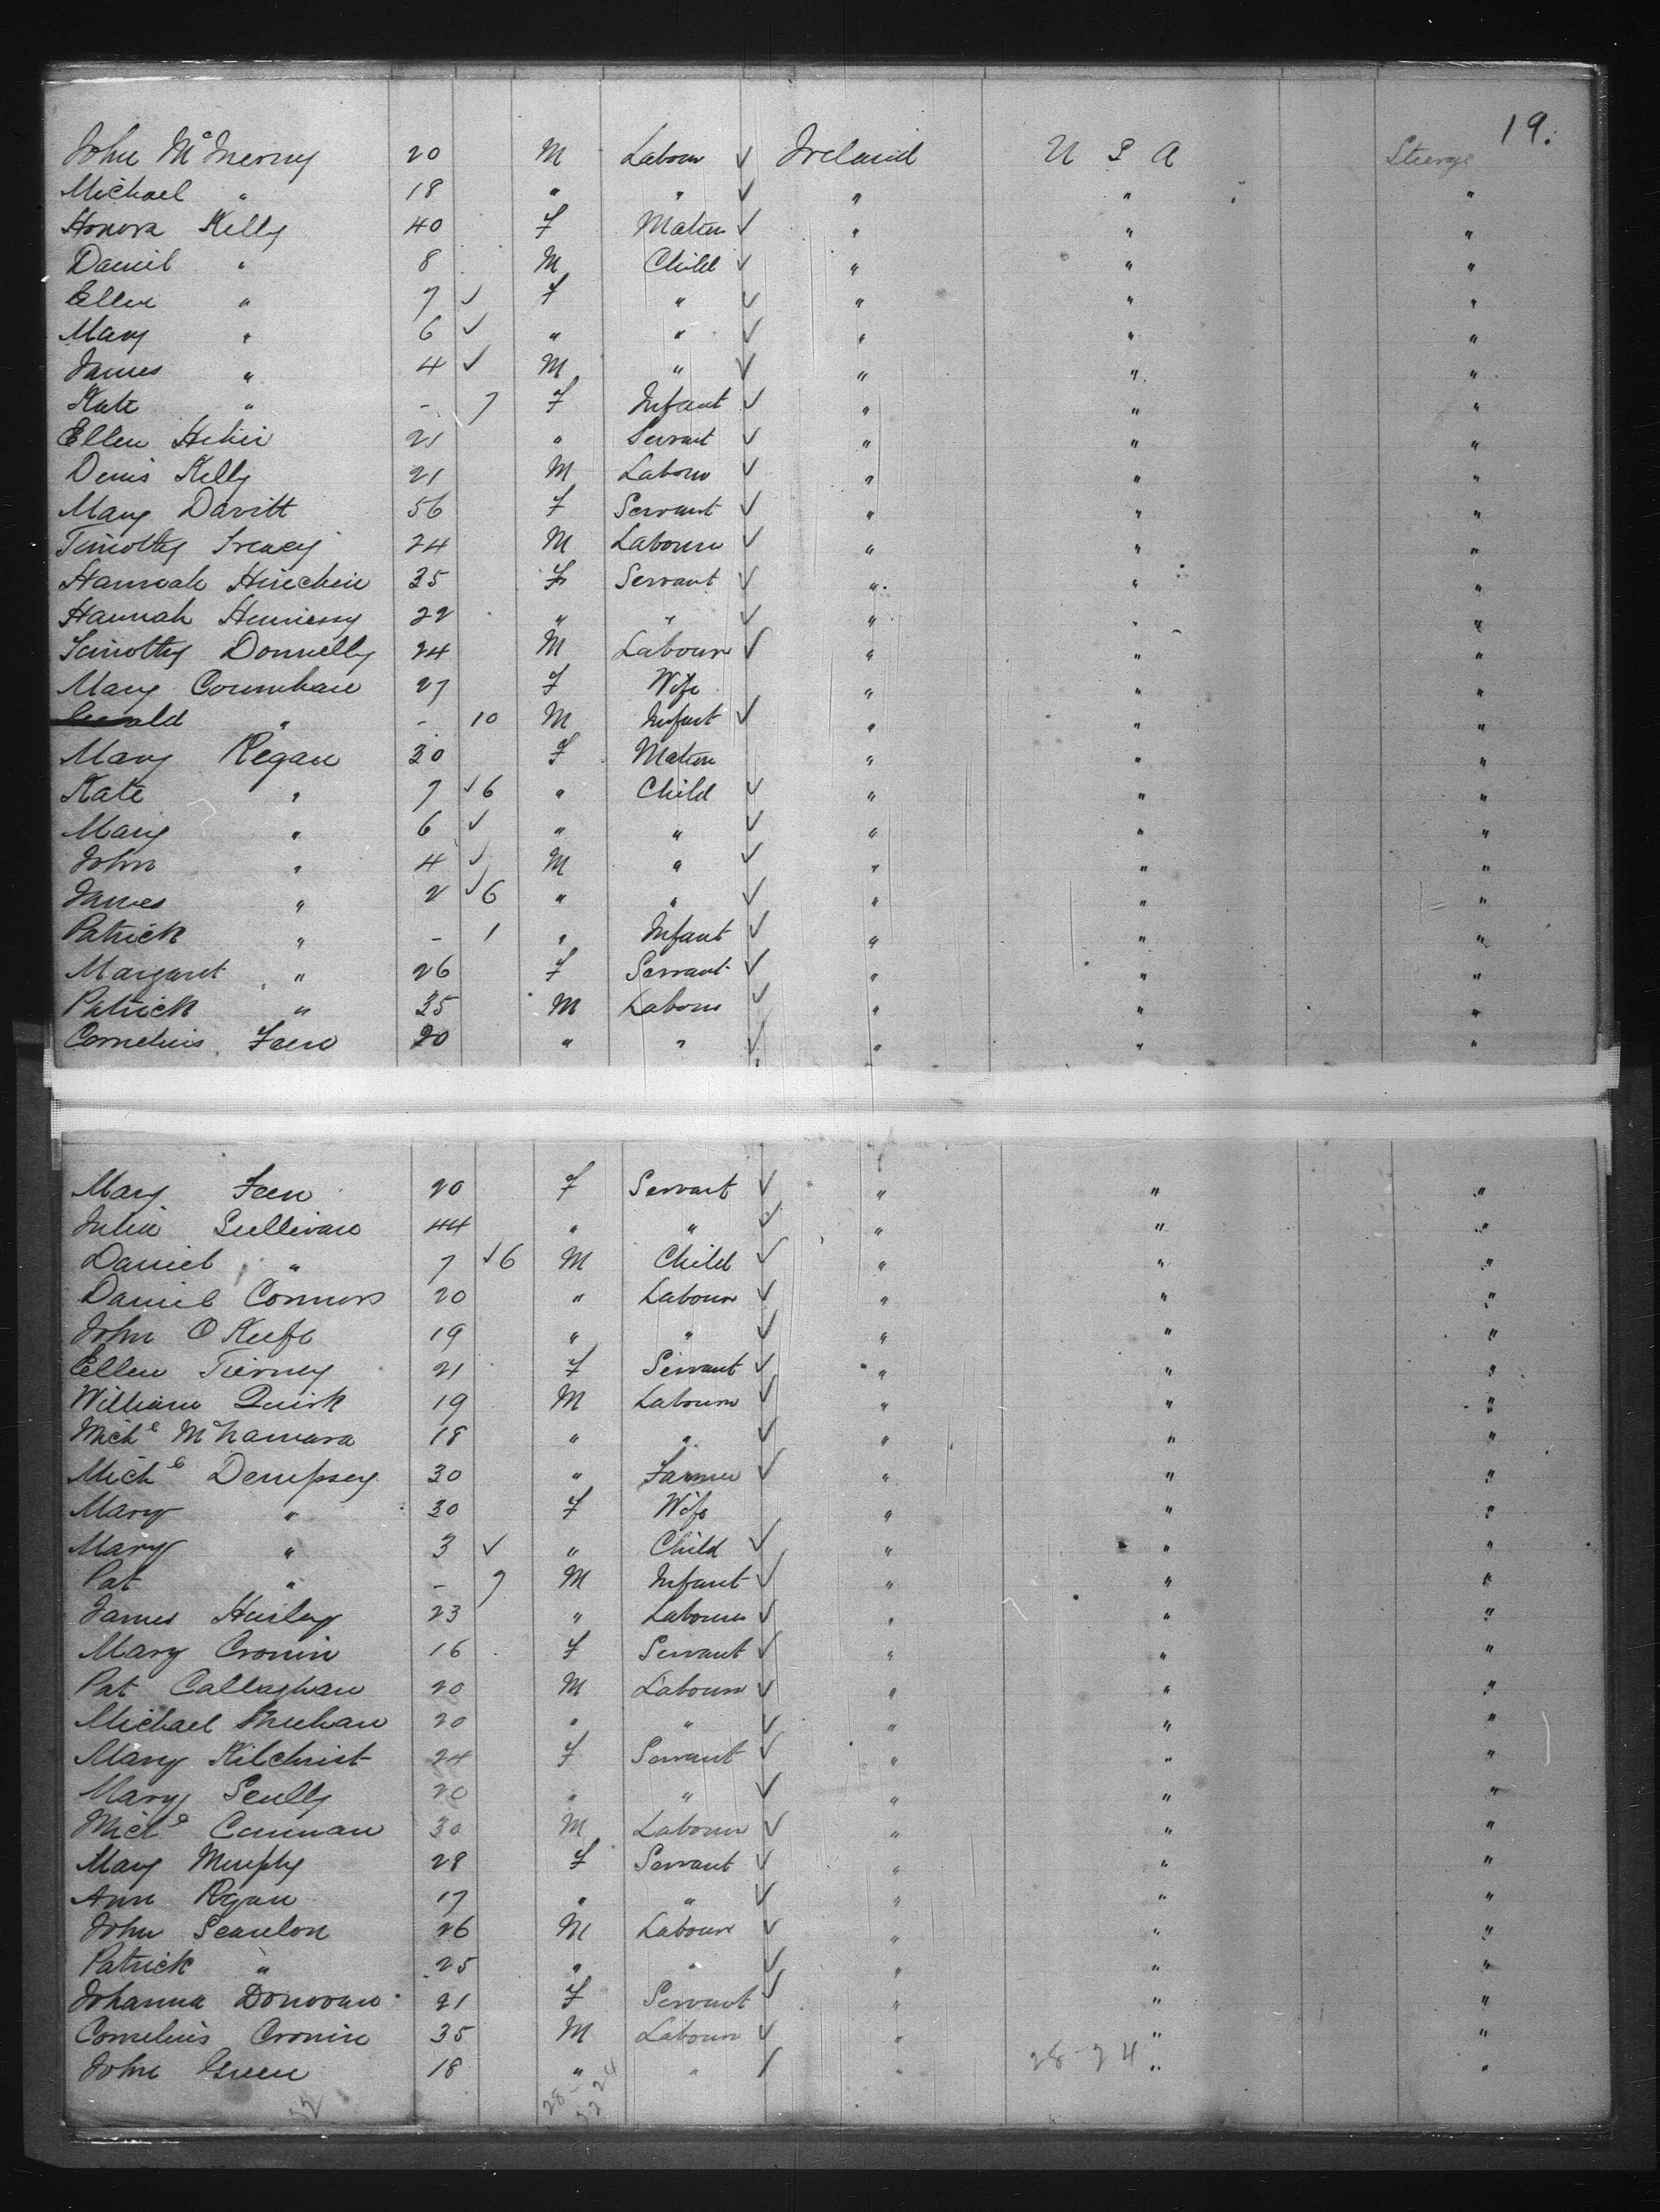 19.
John McInerny 20 M Labour ✓ Ireland U S A Steerage
Michael " 18 " " ✓ " " "
Honora Kelly 40 F Matron ✓ " " "
Daniel " 8 M Child ✓ " " "
Ellen " 7 ✓ F " ✓ " " "
Mary " 6 ✓ " " ✓ " " "
James " 4 ✓ M " ✓ " " "
Kate " - 7 F Infant ✓ " " "
Ellen 21 " Servant ✓ " " "
Denis Kelly 21 M Labour ✓ " " "
Mary Davitt 56 F Servant ✓ " " "
Timothy 24 M Labourer ✓ " " "
Hannah Hinchin 35 F Servant ✓ " " "
Hannah Hennessy 22 " " ✓ " " "
Timothy Donnelly 24 M Labourer ✓ " " "
Mary Counihan 27 F Wife " " "
Gerald " - 10 M Infant ✓ " " "
Mary Regan 30 F Matron " " "
Kate " 7 ✓ 6 " Child ✓ " " "
Mary " 6 ✓ " " ✓ " " "
John " 4 ✓ M " ✓ " " "
James " 2 ✓ 6 " " ✓ " " "
Patrick " - 1 " Infant ✓ " " "
Margaret " 26 F Servant ✓ " " "
Patrick " 35 M Labour ✓ " " "
Cornelius Feen 20 " " ✓ " " "
Mary Feen 20 F Servant ✓ " " "
Julia Sullivan 44 " " ✓ " " "
Daniel " 7 ✓ 6 M Child ✓ " " "
Daniel Connors 20 " Labour ✓ " " "
John O Keefe 19 " " ✓ " " "
Ellen Tierney 21 F Servant ✓ " " "
William Quirk 19 M Labourer ✓ " " "
Michl McNamara 18 " " ✓ " " "
Michl Dempsey 30 " Farmer ✓ " " "
Mary " 30 F Wife " " "
Mary " 3 ✓ " Child ✓ " " "
Pat " - 7 M Infant ✓ " " "
James Hurley 23 " Labourer ✓ " " "
Mary Cronin 16 F Servant ✓ " " "
Pat Callaghan 20 M Labourer ✓ " " "
Michael Sheehan 20 " " ✓ " " "
Mary Kilchrist 24 F Servant ✓ " " "
Mary Scully 20 " " ✓ " " "
Michl 30 M Labourer ✓ " " "
Mary Murphy 28 F Servant ✓ " " "
Ann Ryan 17 " " ✓ " " "
John Scanlon 26 M Labour ✓ " " "
Patrick " 25 " " ✓ " " "
Johanna Donovan 21 F Servant ✓ " " "
Cornelius Cronin 35 M Labour ✓ " " "
John Green 18 " " ✓ " 28-24 " "
52 28- 24